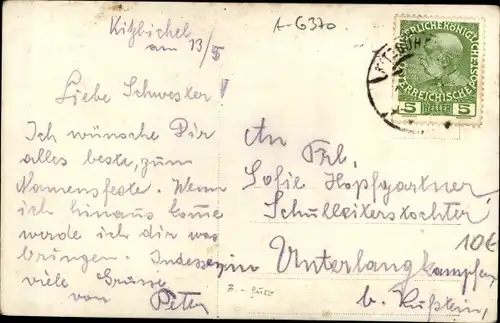 Kitzbichel
am 13/5
A-6370
Liebe Schwester!
Ich wünsche Dir
alles beste, zum
Namensfeste. Wenn
ich hinaus kome
werde ich dir was
bringen. Indessen
viele Grüsse
von Peter
An Frl.
Sofie Hopfgartner
Schulleiterstochter
in Unterlangkampfen
b. Kufstein,
10€
5 HELLER 5